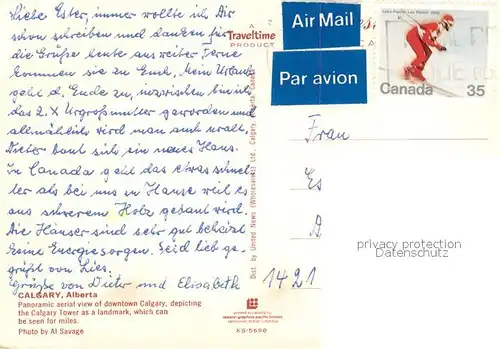 Liebe Ester, immer wollte ich Dir
schon schreiben und danken für
die Grüße heute aus weiter Ferne
kommen sie zu Euch. Mein Urlaub
geht d. Ende zu, inzwischen bin ich
das 2. X Urgroßmutter geworden und
allmählich wird man auch uralt.
Dieter baut sich ein neues Haus.
In Canada geht das etwas schnel-
ler als bei uns zu Hause weil es
aus schwerem Holz gebaut wird.
Die Häuser sind sehr gut beheizt
keine Energiesorgen. Seid lieb ge-
grüßt von Lies.
Grüße von Dieter und Elisabeth
CALGARY, Alberta
Panoramic aerial view of downtown Calgary, depicting
the Calgary Tower as a landmark, which can
be seen for miles.
Photo by Al Savage
A
Traveltime
PRODUCT
Dist. by United News (Wholesalers) Ltd., Calgary, Alberta, Canada
KS-5698
Air Mail
Par avion
Canada 35
Frau
Es
A
1421
privacy protection
Datenschutz